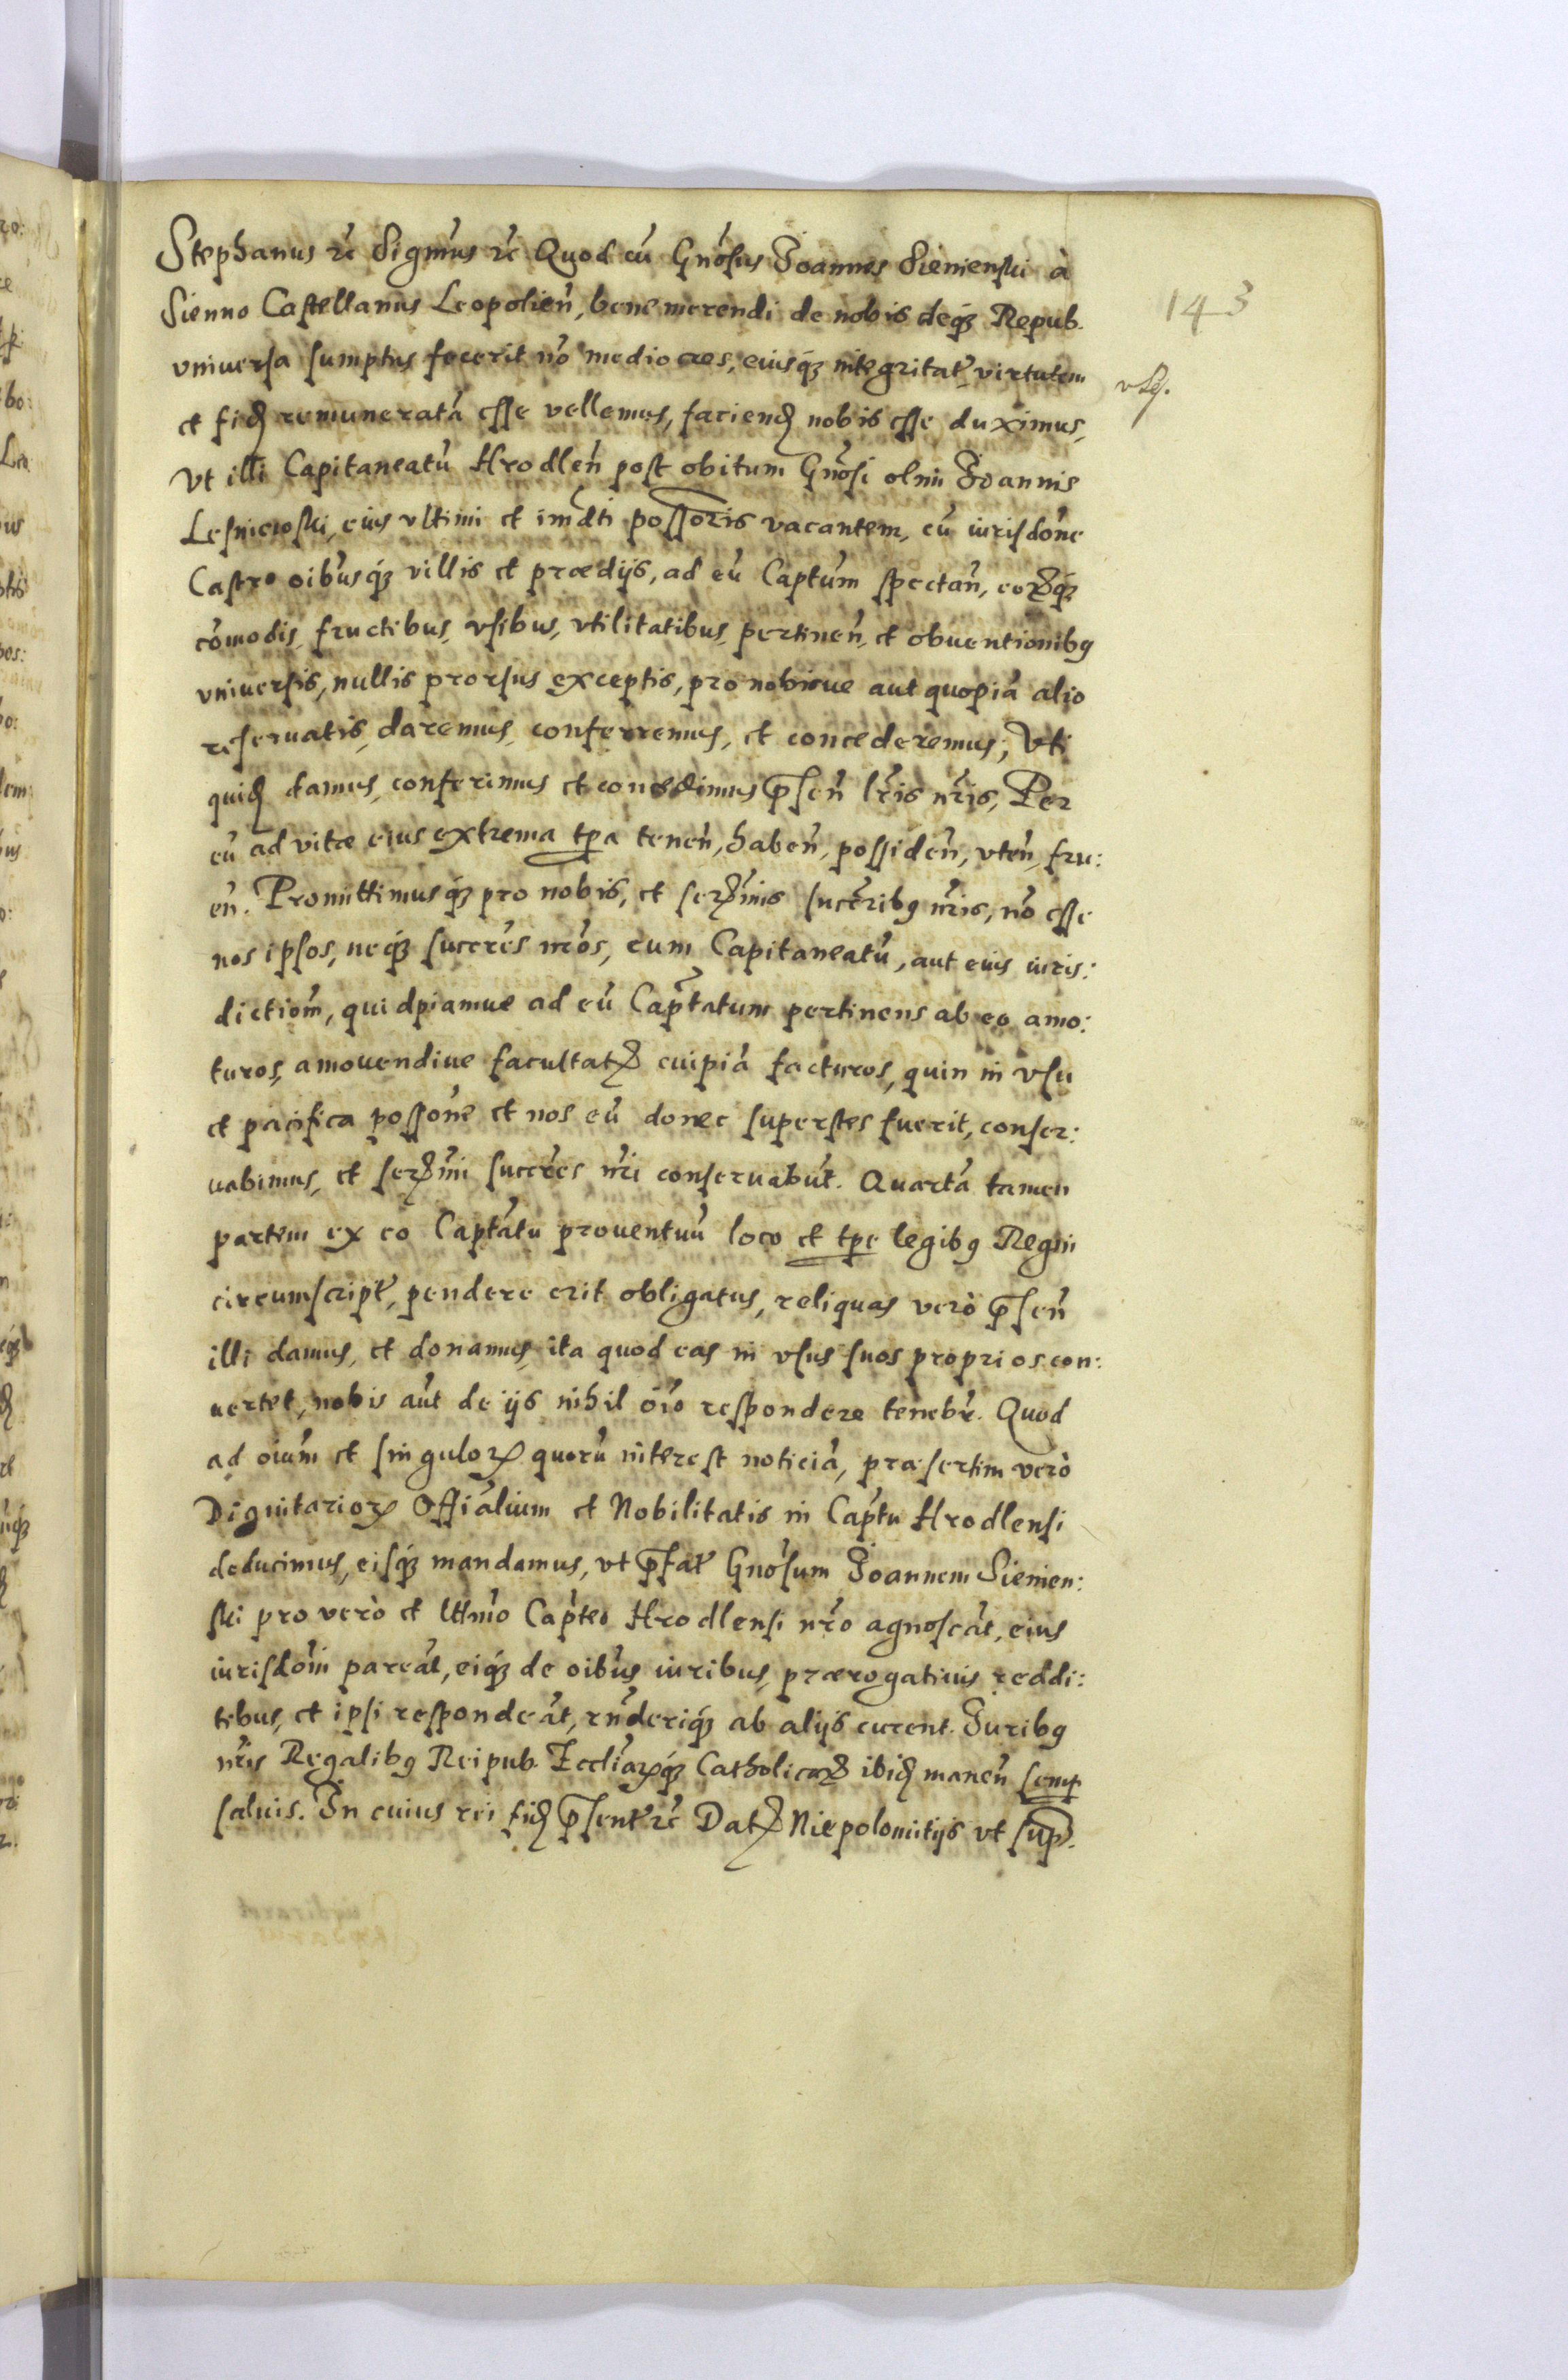 Stephanus rc̃ Sigm̃us rc̃ Quod cũ Gnõsus Joannes Sienieński à
143
Sienno Castellanus Leopolien̄, bene merendi de nobis deq́ꝫ Repub.
vniuersa sumptus fecerit nõ mediocres, eiusq́ꝫ integritat̃, virtutem
et fidẽ remuneratã esse vellemus, faciendũ nobis esse duximus,
Vt illi Capitaneatũ Hrodlen̄ post obitum Gnõsi olim Joannis
Lesniewski, eius vltimi et im̃dti possoris vacantem, cũ iurisdõne
Castro oĩbusq́ꝫ villis et prædijs, ad eũ Captũm spectan̄, eorꝫq́ꝫ
cõmodis, fructibus, vsibus, vtilitatibus, pertinen̄, et obuentionibꝰ
vniuersis, nullis prorsus exceptis, pro nobisue aut quopiã alio
reseruatis, daremus, conferremus, et concederemus; Vti
quidẽ damus, conferimus et concedimus p̃sen̄ lr̃is nr̃is, Per
eũ ad vitæ eius extrema tpa tenen̄, haben̄, possiden̄, vten̄, fru:
en̄. Promittimusq́ꝫ pro nobis, et serꝫm̃is succr̃ibꝰ nr̃is, nõ esse
nos ipsos, neq́ꝫ succr̃es nr̃os, eum Capitaneatũ, aut eius iuris:
dictiom̃, quidpiamue ad eũ Cap̃tatum pertinens ab eo amo:
turos, amouendiue facultatꝫ cuipiã facturos, quin in vsu
et pacifica possõne et nos eũ donec superstes fuerit, conser:
uabimus, et serꝫm̃i succr̃es nr̃i conseruabũt. Quartã tamen
partem ex eo Captãtu prouentuũ loco et tpe legibꝰ Regni
circumscript̃, pendere erit obligatus, reliquas verò p̃sen̄
illi damus, et donamus, ita quod eas in vsus suos proprios con:
uertet, nobis aũt de ijs nihil oĩo respondere tenebr̃. Quod
ad oiũm et singulorꝫ quorũ interest noticiã, præsertim verò
Dignitariorꝫ Offiãlium et Nobilitatis in Cap̃tu Hrodlensi
deducimus, eisq́ꝫ mandamus, vt p̃fat̃ Gnõsum Joannem Sienien:
ski pro verò et lttm̃o Cap̃teo Hrodlensi nr̃o agnoscãt, eius
iurisdom̃ pareãt, eiq́ꝫ de oibũs iuribus, prærogatiuis reddi:
tibus, et ipsi respondeãt, rñderiq́ꝫ ab alijs curent. Juribꝰ
nr̃is Regalibꝰ Reipub. Eccliãrꝫq́ꝫ Catholicarꝫ ibidẽ manen̄ semp
saluis. In cuius rei fidẽ p̃sent̃ rc̃ Datꝫ Niepolomitijs vt sup̃.